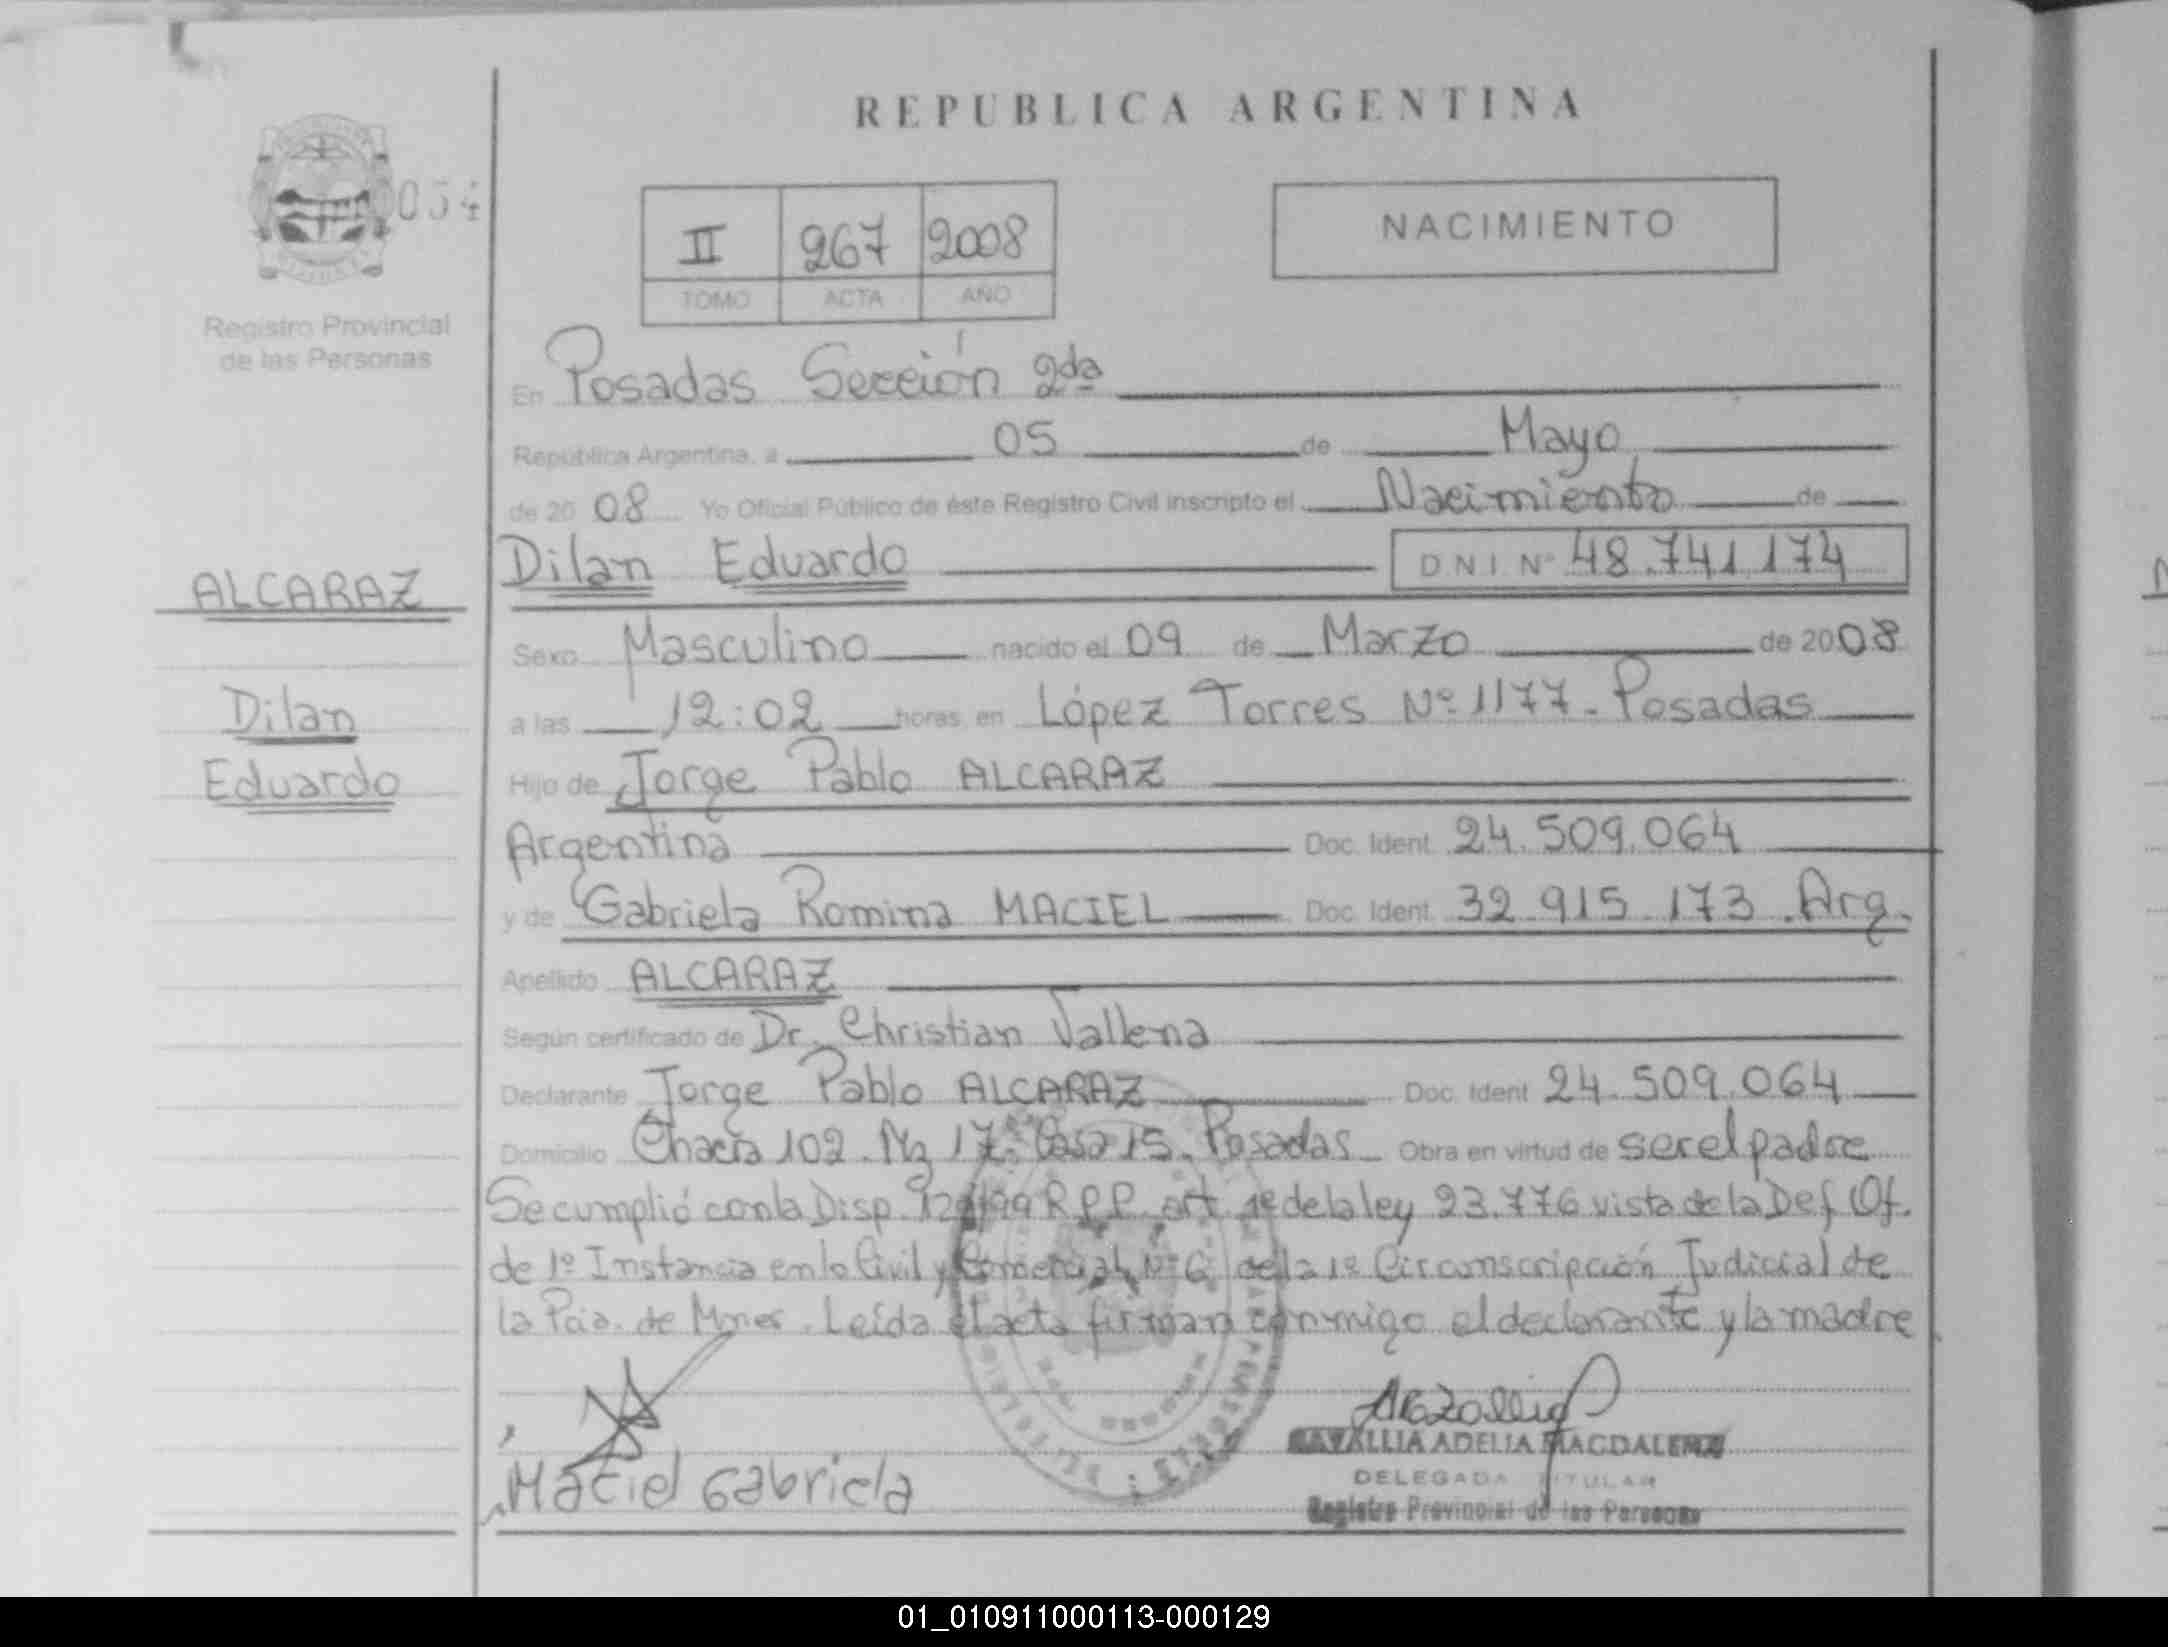 REPUBLICA ARGENTINA
054
Registro Provincial
de las Personas
II 267 2008
TOMO ACTA AÑO
NACIMIENTO
En Posadas Sección 2da
República Argentina, a 05 de Mayo
de 2008 Yo Oficial Público de éste Registro Civil inscripto el Nacimiento de
ALCARAZ
Dilan Eduardo DNI Nº 48.741.174
Sexo Masculino nacido el 09 de Marzo de 2008
Dilan
a las 12:02 horas en López Torres Nº 1177. Posadas
Eduardo
Hijo de Jorge Pablo ALCARAZ
Argentina Doc. Ident. 24.509.064
y de Gabriela Romina MACIEL Doc. Ident. 32.915.173. Arg.
Apellido ALCARAZ
Según certificado de Dr. Christian Vallena
Declarante Jorge Pablo ALCARAZ Doc. Ident 24.509.064
Domicilio Chacra 102. Mz 17. Casa 15. Posadas Obra en virtud de ser el padre
Se cumplió con la Disp. R.P.P. art. 1º de la ley 23.776 vista de la Def. Of.
de 1º Instancia en lo Civil y Comercial Nº 6 de la 1º Circunscripción Judicial de
la Pcia. de Mnes. Leída el acta firman conmigo el declarante y la madre
Maciel Gabriela
ADELIA MAGDALENA
DELEGADA TITULAR
Registro Provincial de las Personas
01_010911000113-000129